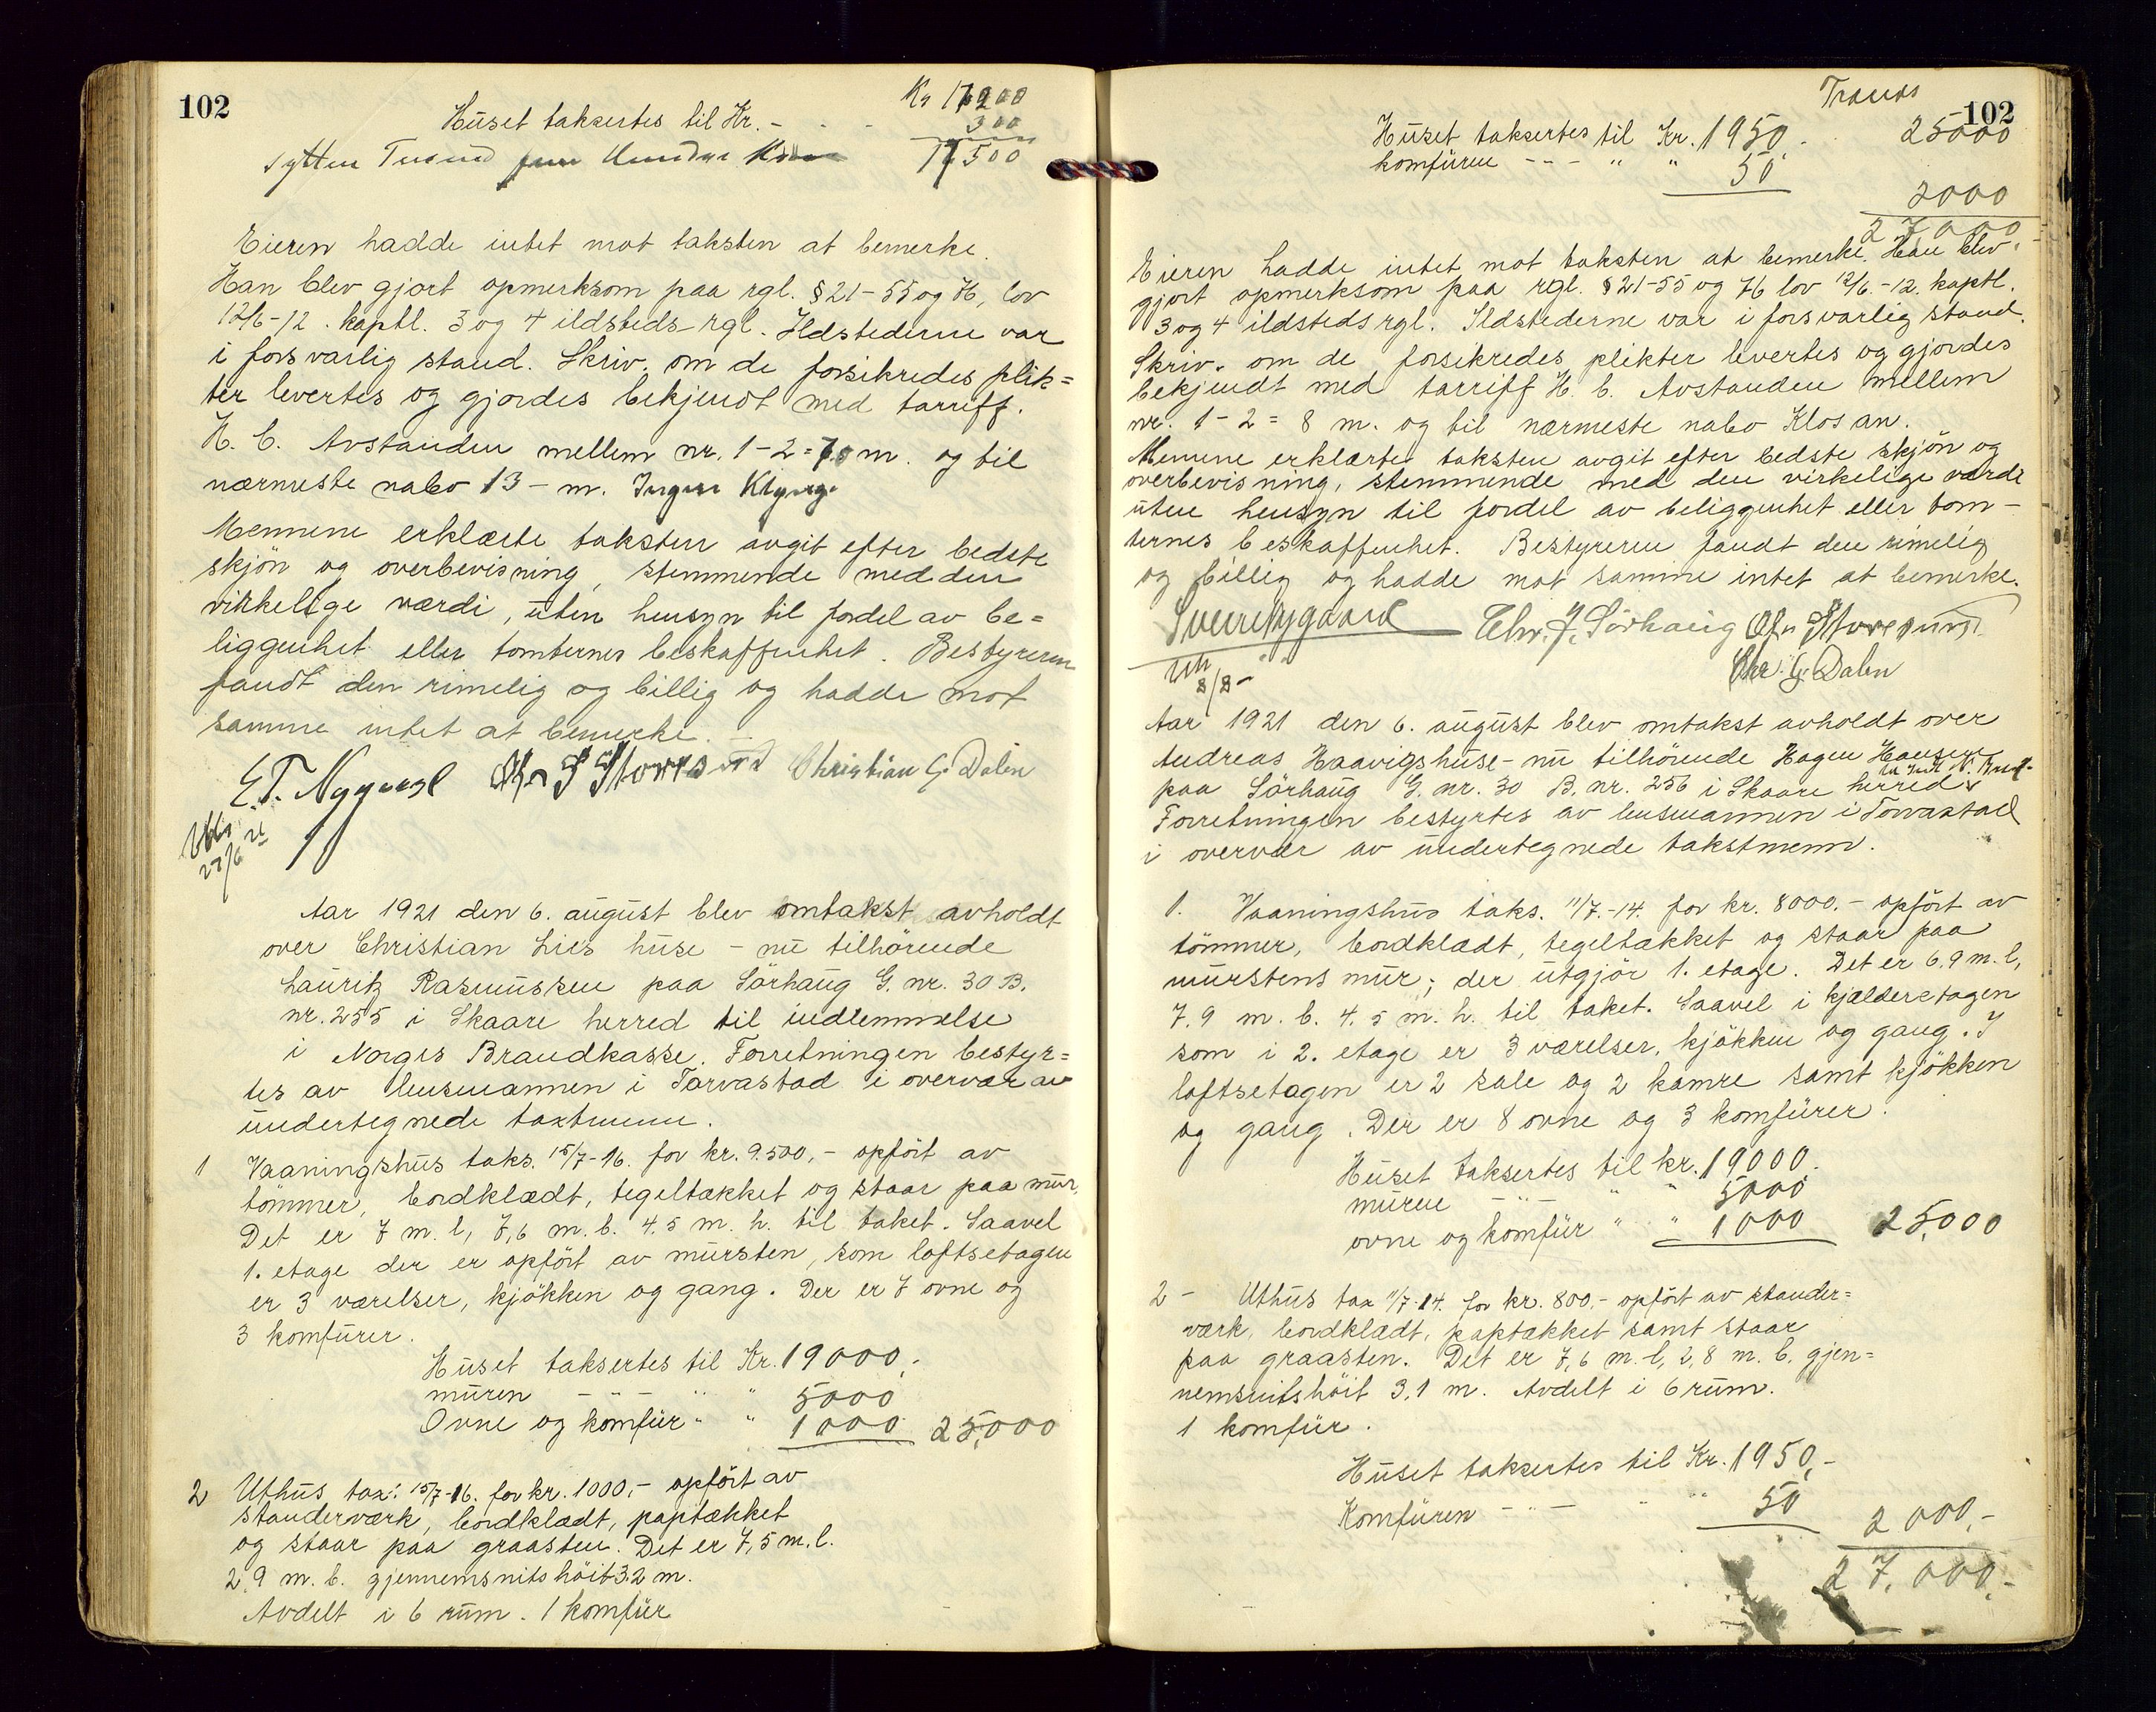 102
Kr 17200
Huset taksertes til Kr. - - - 300
sytten Tusend fem Hundre Kroner 17500
Eieren hadde intet mot taksten at bemerke.
Han blev gjort opmerksom paa rgl. § 21-55 og 76, lov
12/6-12. kaptl. 3 og 4 ildsteds-rgl. Ildstederne var
i forsvarlig stand. Skriv. om de forsikredes plik=
ter levertes og gjordes bekjendt med tarriff.
H. C. Avstanden mellem nr. 1-2=7.0 m. og til
nærmeste nabo 13 - m.
Mennene erklærte taksten avgit efter bedste
skjön og overbevisning, stemmende med den
virkelige værdi, uten hensyn til fordel av be=
liggenhet eller tomternes beskaffenhet. Bestyreren
fandt den rimelig og billig og hadde mot
samme intet at bemerke.
E. T. Nygaard Christian G. Dalen
Aar 1921 den 6. august blev omtakst avholdt
over Christian Lies huse - nu tilhörende
Lauritz Rasmussen paa Sörhaug G. nr. 30 B.
nr. 255 i Skaare herred til indlemmelse
i Norges Brandkasse. Forretningen bestyr=
tes av lensmannen i Torvastad i overvær av
undertegnede taxtmenn.
1 Vaaningshus taks. 15/7-16. for kr. 9.500,- opfört av
tömmer, bordklædt, tegeltækket og staar paa mur.
Det er 7 m. l, 7,6 m. b. 4.5 m. h. til taket. Saavel
1. etage der er opfört av mursten, som loftsetagen
er 3 værelser, kjökken og gang. Der er 7 ovne og
3 komfurer.
Huset taksertes til Kr. 19000,-
muren - " - " " 5000
Ovne og komfür " " 1000 25,000
2 Uthus tax: 15/7-16. for kr. 1000,- opfört av
standerværk, bordklædt, paptækket
og staar paa graasten. Det er 7,5 m. l.
2,9 m. b. gjennemsnits höit 3.2 m.
Avdelt i 6 rum. 1 komfür
102
Huset taksertes til Kr. 1950. - 25000
komfüren - - - " " 50
2000
27,000,-
Eieren hadde intet mot taksten at bemerke. Han blev
gjort opmerksom paa rgl. § 21-55 og 76 lov 12/6.-12. kaptl.
3 og 4 ildstedsrgl. Ildstederne var i forsvarlig stand.
Skriv. om de forsikredes plikter levertes og gjordes
bekjendt med tarriff H. C. Avstanden mellem
nr. 1-2 = 8 m. og til nærmeste nabo Klos an.
Mennene erklærte taksten avgit efter bedste skjön og
overbevisning, stemmende med den virkelige værdi
uten hensyn til fordel av beliggenhet eller tom-
ternes beskaffenhet. Bestyreren fandt den rimelig
og billig og hadde mot samme intet at bemerke.
Sverre Nygaard Chr. J. Sörhaug
Chr. G. Dalen
8/8-
Aar 1921 den 6. august blev omtakst avholdt over
Andreas Haavigs huse - nu tilhörende Hagen Hansen
paa Sörhaug G. nr. 30 B. nr. 256 i Skaare herred
Forretningen bestyrtes av lensmannen i Torvastad
i overvær av undertegnede takstmenn.
1. Vaaningshus taks. 11/7.-14. for kr. 8000.- opfört av
tömmer, bordklædt, tegeltækket og staar paa
murstens mur; der utgjör 1. etage. Det er 6.9 m. l,
7.9 m. b. 4.5 m. h. til taket. Saavel i kjælderetagen
som i 2. etage er 3 værelser, kjökken og gang. I
loftsetagen er 2 sale og 2 kamre samt kjökken
og gang. Der er 8 ovne og 3 komfürer.
Huset taksertes til kr. 19000.
muren - " - " " 5000
ovne og komfür " " 1000 25,000
2 - Uthus tax 11/7-14. for kr. 800,- opfört av stander=
værk, bordklædt, paptækket samt staar
paa graasten. Det er 7,6 m. l, 2,8 m. b. gjen=
nemsnitshöit 3.1 m. Avdelt i 6 rum.
1 komfür.
Huset taksertes til Kr. 1950,-
Komfüren - " - " " 50 2000,-
27,000,-